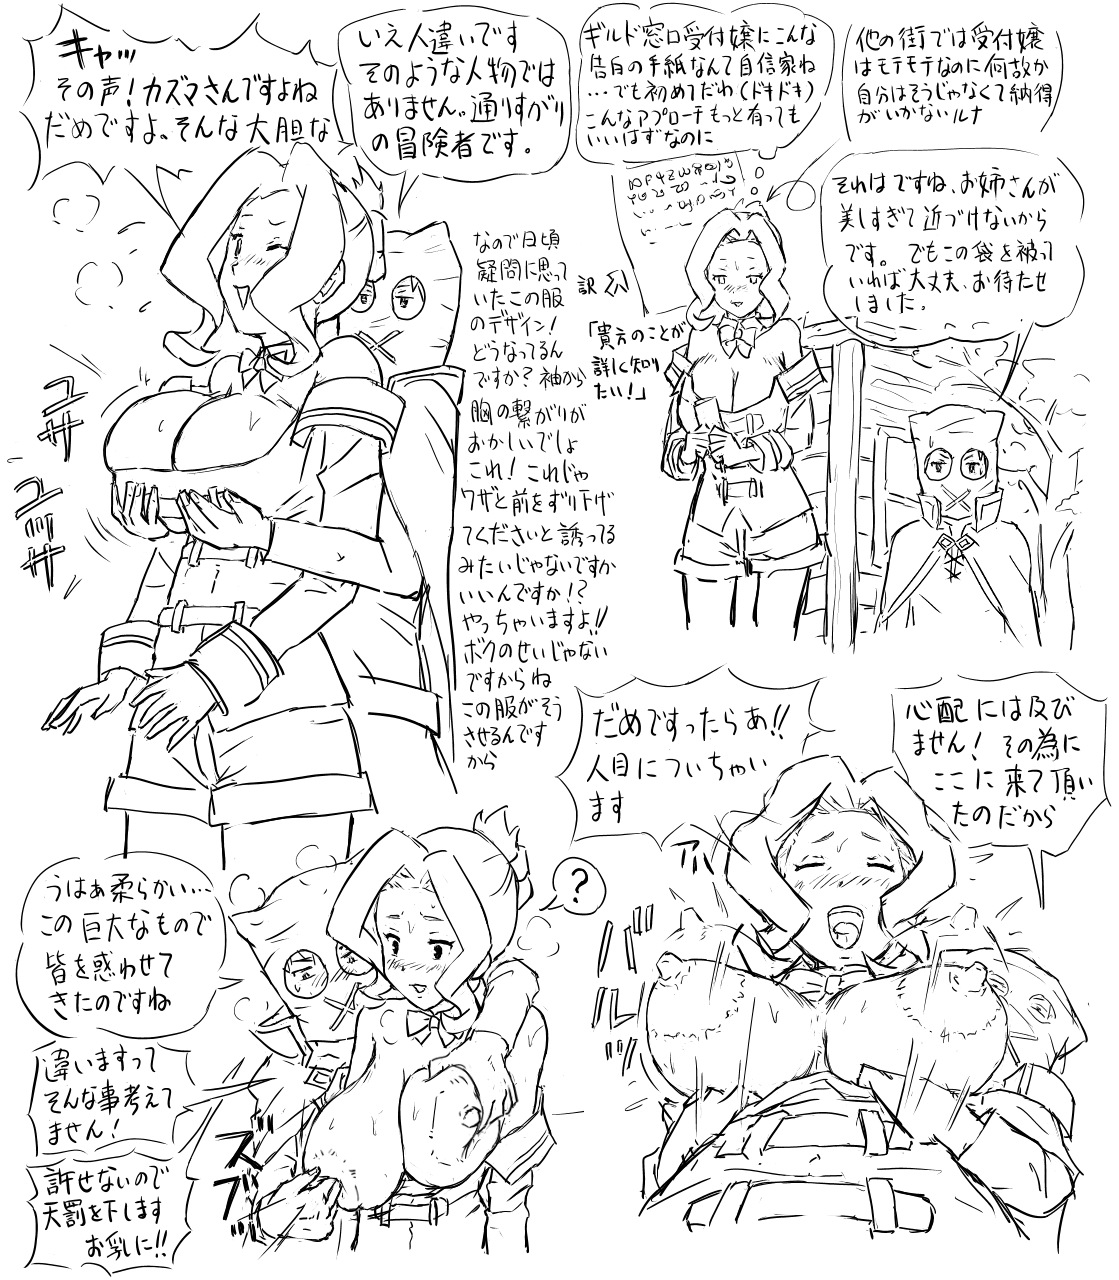 他の街では受付嬢
はモテモテなのに何故か
自分はそうじゃなくて納得
がいかないルナ
ギルド窓口受付嬢にこんな
告白の手紙なんて自信家ね
…でも初めてだわ(ドキドキ)
こんなアプローチもっと有っても
いいはずなのに
訳
「貴方のことが
詳しく知り
たい!」
それはですね、お姉さんが
美しすぎて近づけないから
です。でもこの袋を被って
いれば大丈夫、お待たせ
しました。
いえ人違いです
そのような人物では
ありません。通りすがり
の冒険者です。
キャッ
その声!カズマさんですよね
だめですよ、そんな大胆な
なので日頃
疑問に思って
いたこの服
のデザイン!
どうなってるん
ですか?袖から
胸の繋がりが
おかしいでしょ
これ!これじゃ
ワザと前をずり下げ
てくださいと誘ってる
みたいじゃないですか
いいんですか!?
やっちゃいますよ!!
ボクのせいじゃない
ですからね
この服がそう
させるんです
から
ユサ
ユッサ
心配には及び
ません!その為に
ここに来て頂い
たのだから
だめですったらあ!!
人目についちゃい
ます
アハ
バ
ルル
?
うはぁ柔らかい…
この巨大なもので
皆を惑わせて
きたのですね
違いますって
そんな事考えて
ません!
許せないので
天罰を下します
お乳に!!
ズブ